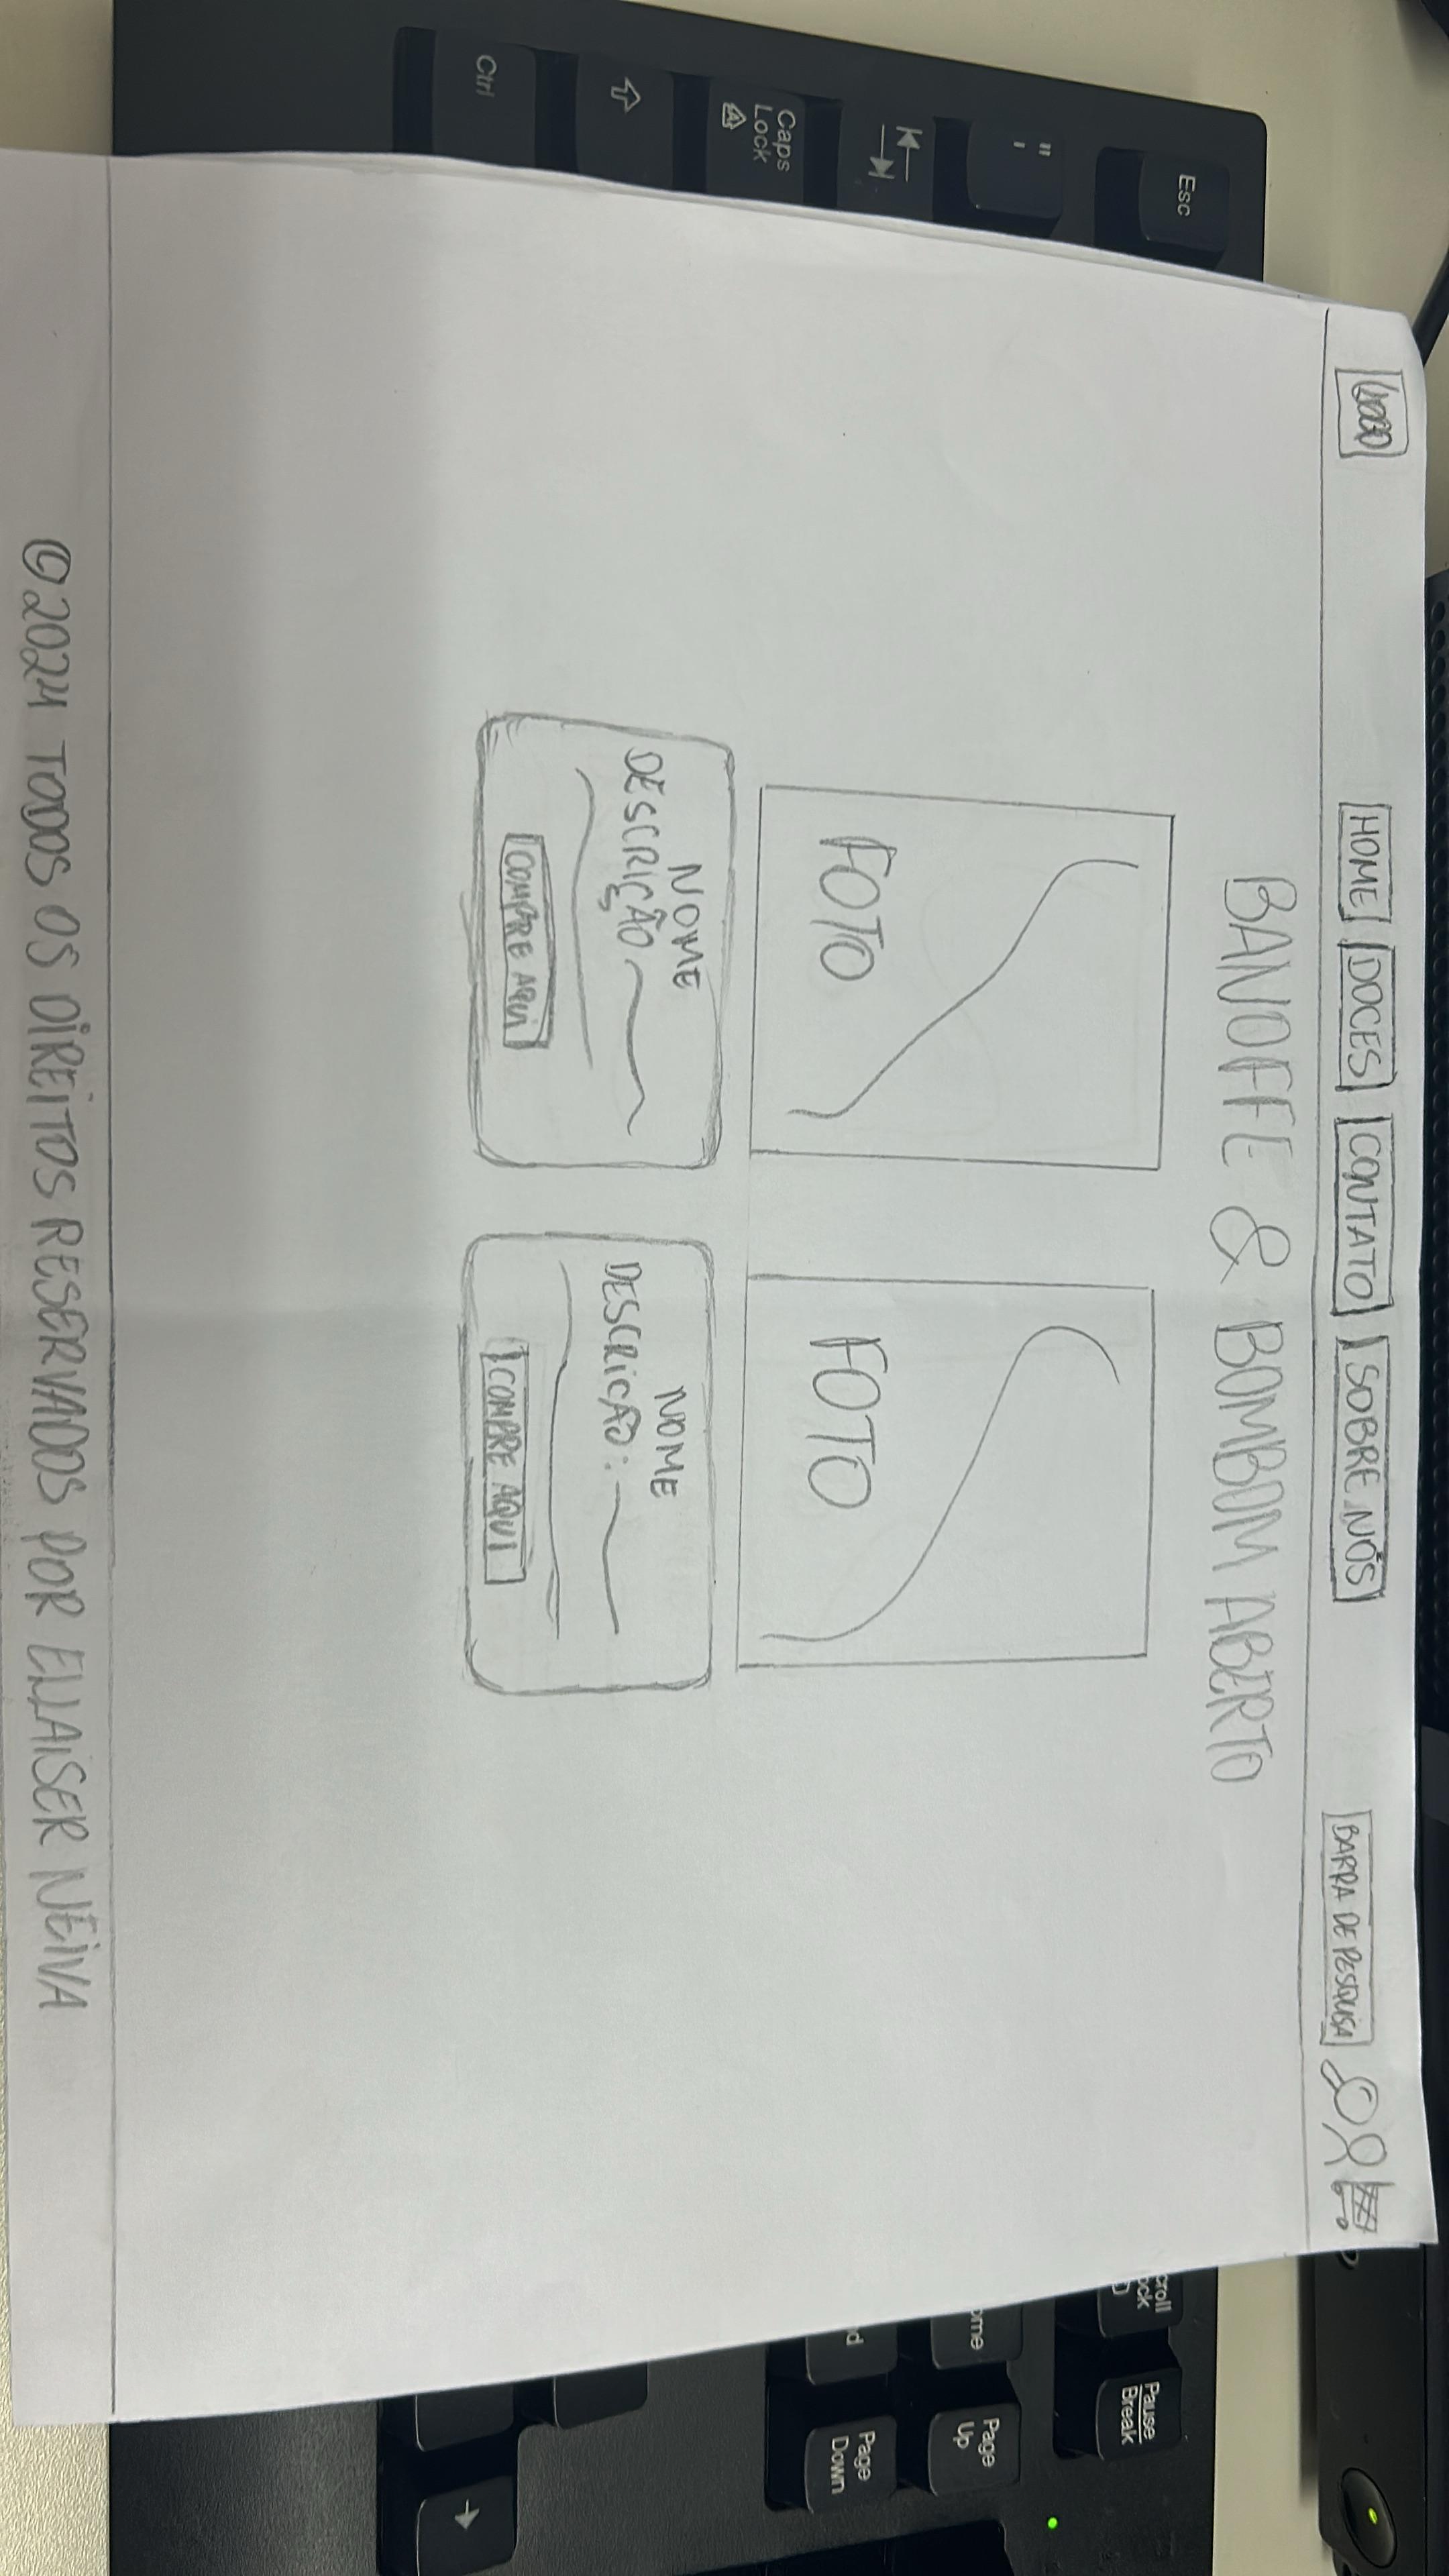 LOGO
HOME DOCES CONTATO SOBRE NÓS
BARRA DE PESQUISA
BANOFFE & BOMBOM ABERTO
FOTO
FOTO
NOME
DESCRIÇÃO
COMPRE AQUI
NOME
DESCRIÇÃO:
COMPRE AQUI
©2024 TODOS OS DIREITOS RESERVADOS POR ELLAISER NEIVA
Esc
"
'
Caps
Lock
Ctrl
Pause
Break
Page
Up
Page
Down